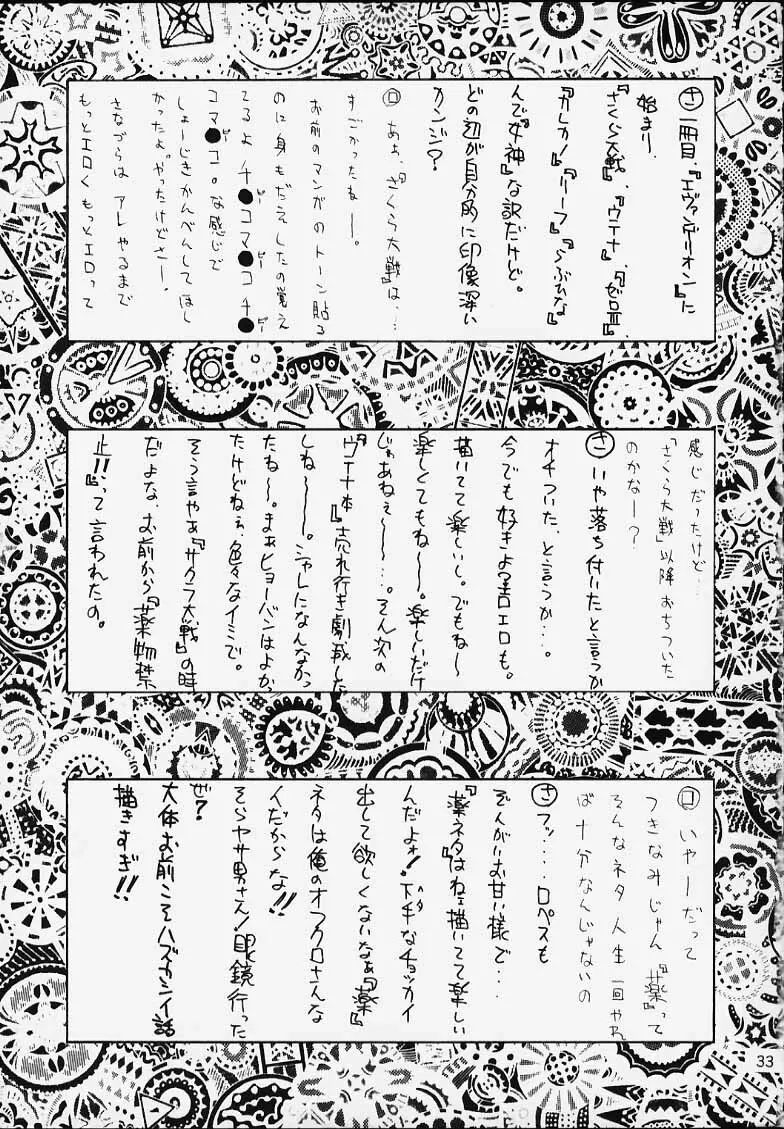 さ 一冊目、『エヴァンゲリオン』に
始まり、
『さくら大戦』、『ウテナ』、『ゼロⅢ』、
『カレカノ』『リーフ』『らぶひな』
んで『女神』な訳だけど。
どの辺が自分的に印像深い
カンジ？
ロ あぁ、『さくら大戦』は…
すごかったねー。
お前のマンガのトーン貼る
のに身もだえしたの覚え
てるよ チ●コマ●コチ●
ピー ピー ピー
コマ●コ。な感じで
ピー
しょーじきかんべんしてほし
かったよ。やったけどさー、
さなづらは アレ やるまで
もっとエロくもっとエロって
感じだったけど…
「さくら大戦」以降おちついた
のかなー？
さ いや落ち付いたと言うか
オチついた、と言うか…。
今でも好きよ？エロエロも。
描いてて楽しいし。でもね〜
楽しくてもね〜。楽しいだけ
じゃあねぇ〜…。そん次の
『ウテナ本』売れ行き劇減した
しね〜。シャレになんなかっ
たね〜。まぁヒョーバンはよかっ
たけどねぇ、色々なイミで。
そう言やぁ『サクラ大戦』の時
だよな、お前から『薬物禁
止!!』って言われたの。
ロ いやーだって
つきなみじゃん『薬』って
そんなネタ人生一回やれ
ば十分なんじゃないの
さ フッ…、ロペスも
ぞんがいお甘い様で…
『薬ネタはねェ描いてて楽しい
んだよォ！下手なチョッカイ
ヘタ
出して欲しくないなぁ『薬』
ネタは俺のオフクロさんな
んだからな!!
そらヤサ男さん！眼鏡行った
ぜ？
大体お前こそハズカシイ話
描きすぎ!!
33